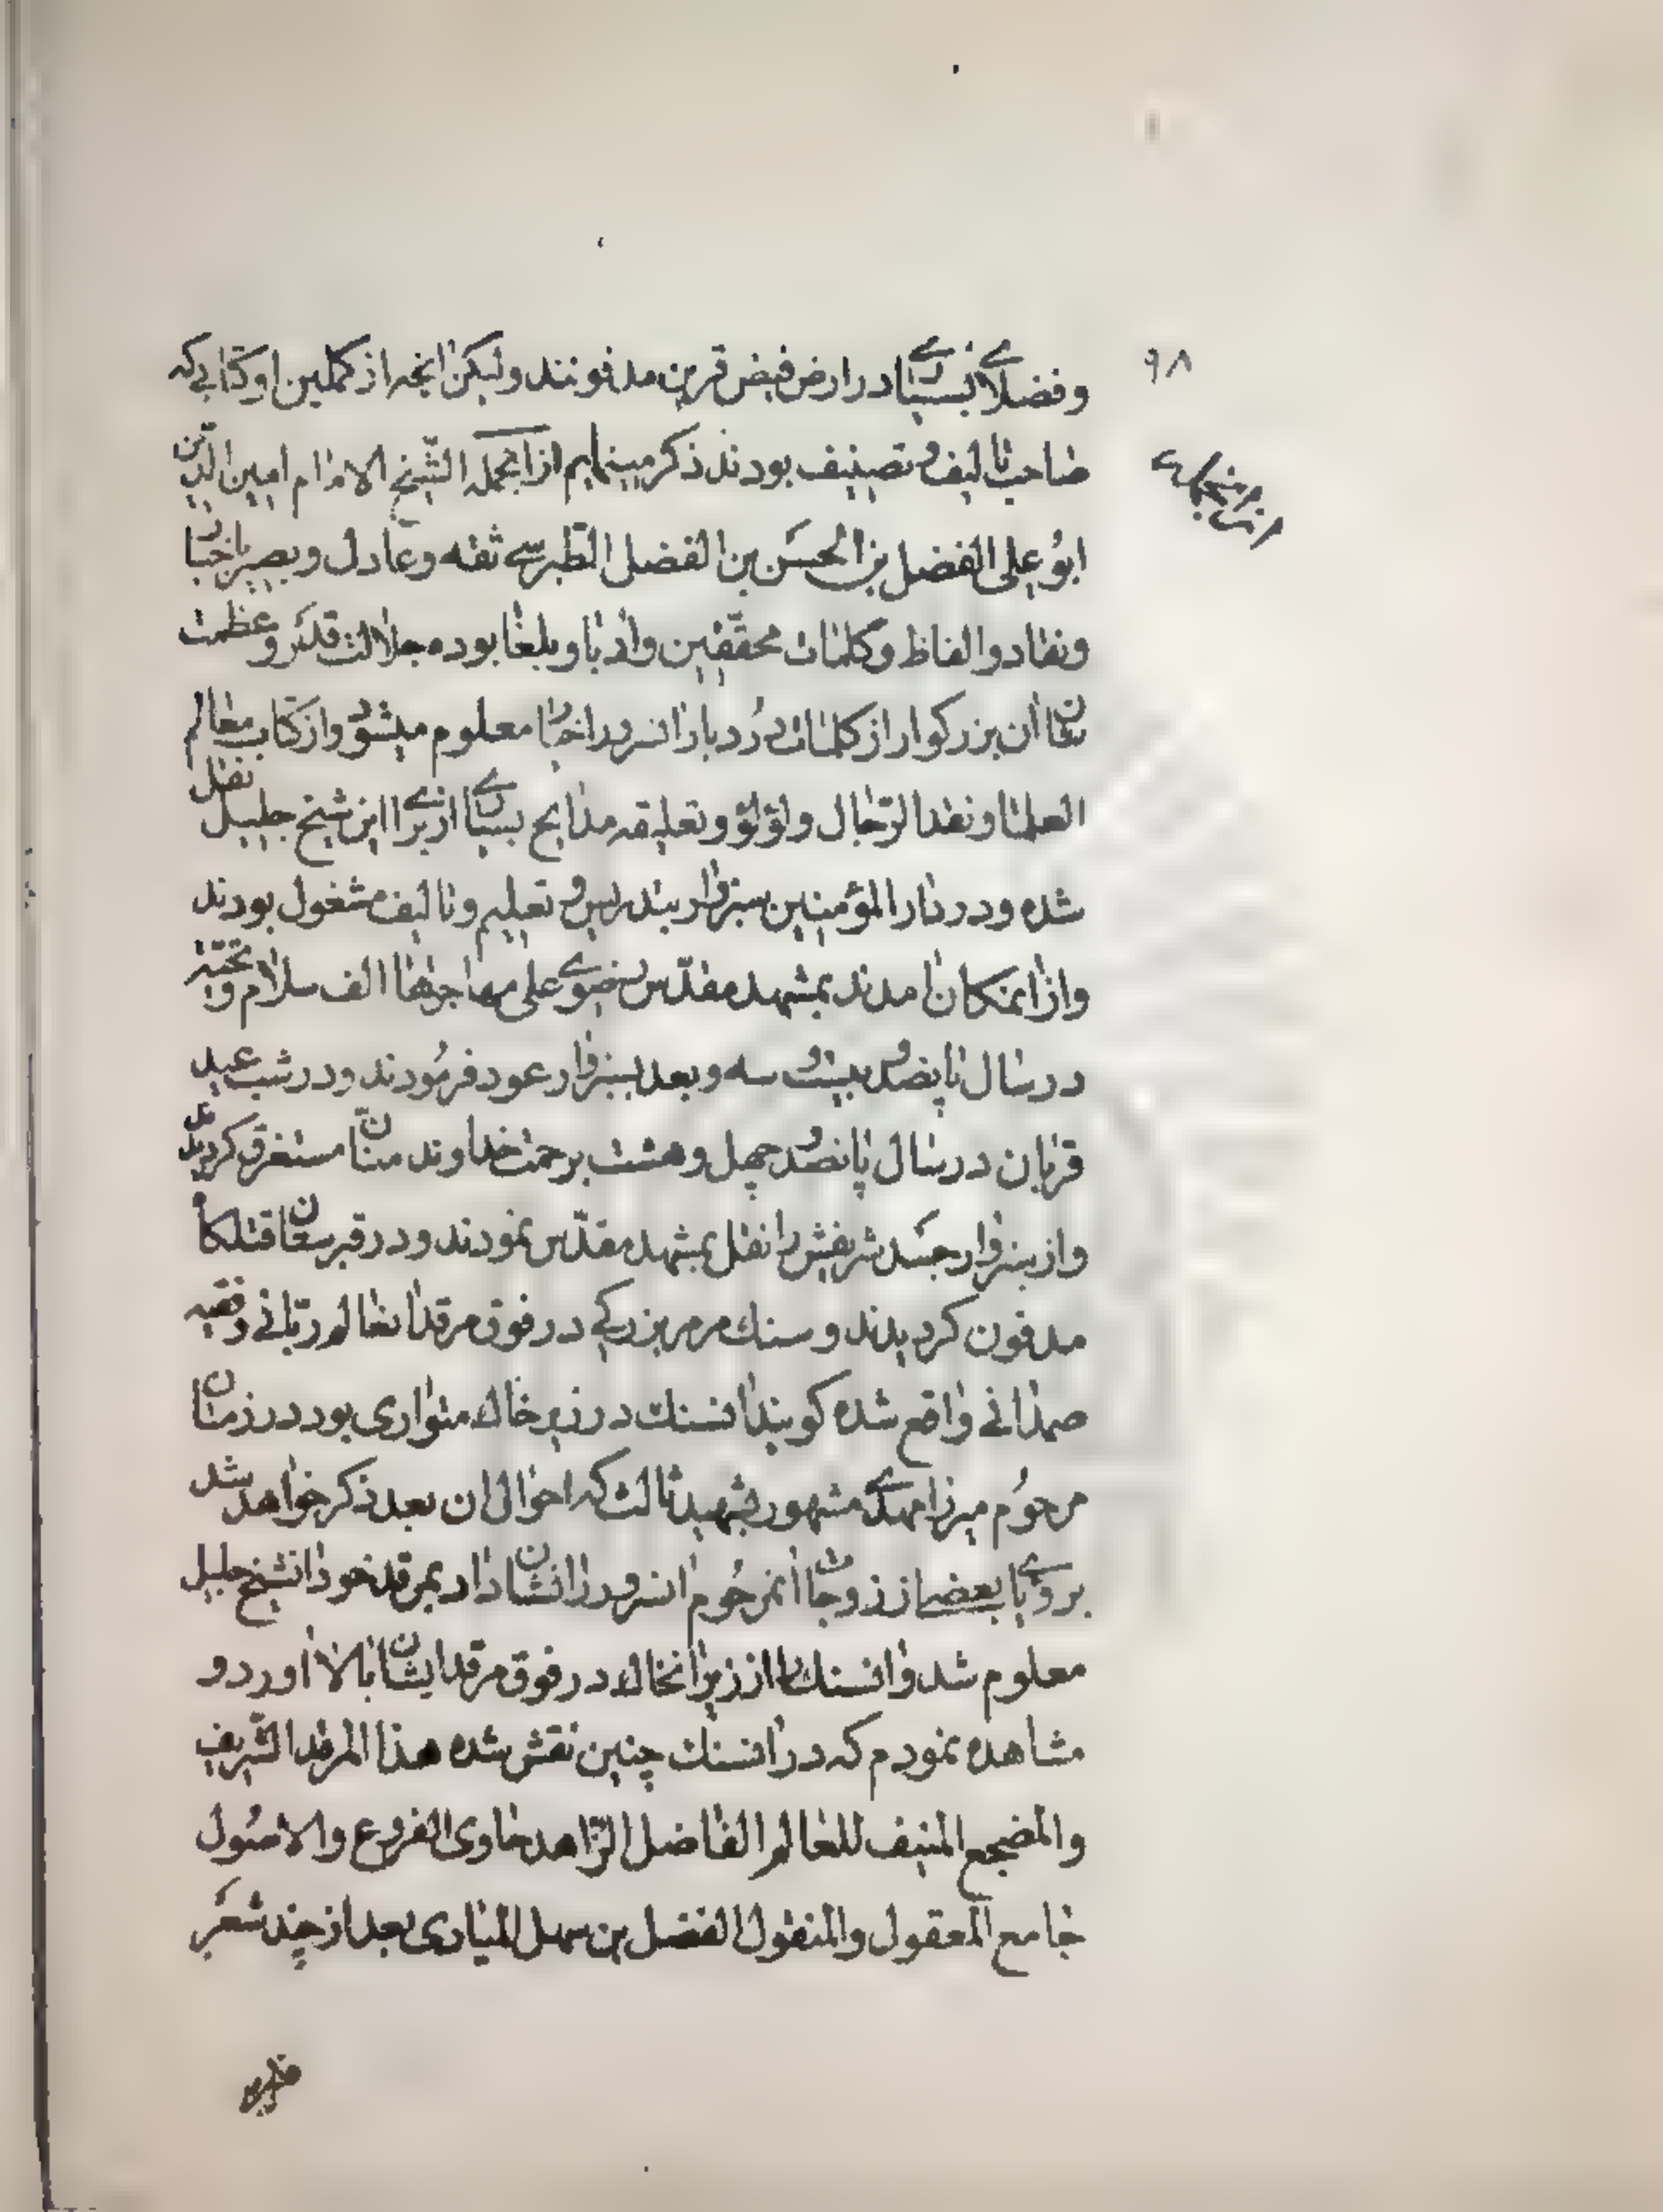 ۹۸
وفضلای بسیار در ارض فیض قرین مدفونند ولیکن انچه از کملین او کتابی که
صاحب تالیف و تصنیف بودند ذکر مینمایم از انجمله الشیخ الامام امین الدین
ابو علی الفضل بن الحسن بن الفضل الطبرسی ثقه و عادل و بصیر باخبار
ونقاد والفاظ وکلمات محققین وادبا وبلغا بوده جلالت قدر و عظمت
شان ان بزرکوار از کلمات درر بار انسرور اخیار معلوم میشود واز کتاب معالم
العلما ونقد الرجال ولؤلؤ وتعلیقه مدایح بسیار از برای این شیخ جلیل نقل
شده ودر دار المؤمنین سبزوار بتدریس و تعلیم وتالیف مشغول بودند
واز انمکان امدند بمشهد مقدس رضوی علی مهاجرتها الف سلام و تحیة
در سال پانصد و بیست و سه وبعد بسبزوار عود فرمودند ودر شب عید
قربان در سال پانصد و چهل وهشت برحمت خداوند منان مستغرق کردیدند
واز سبزوار جسد شریفش را نقل بمشهد مقدس نمودند ودر قبرستان قتلکاه
مدفون کردیدند وسنك مرمر بزرکی در فوق مرقد انعالم ربانی و فقیه
صمدانی واقع شده کویند انسنك در زیر خاك متواری بود در زمان
مرحوم میرزا مهدی مشهور بشهید ثالث که احوال ان بعد ذکر خواهد شد
بروی با بعضی از زوجات انمرحوم انسرور را نشان داد بمرقد خود انشیخ جلیل
معلوم شد وانسنك را از زیر انخاك در فوق مرقد ایشان بالا اورد و
مشاهده نمودم که در انسنك چنین نقش شده هذا المرقد الشریف
والمضجع المنیف للعالم الفاضل الزاهد حاوی الفروع والاصول
جامع المعقول والمنقول الفضل بن سهل المیاری بعد از چند شعر